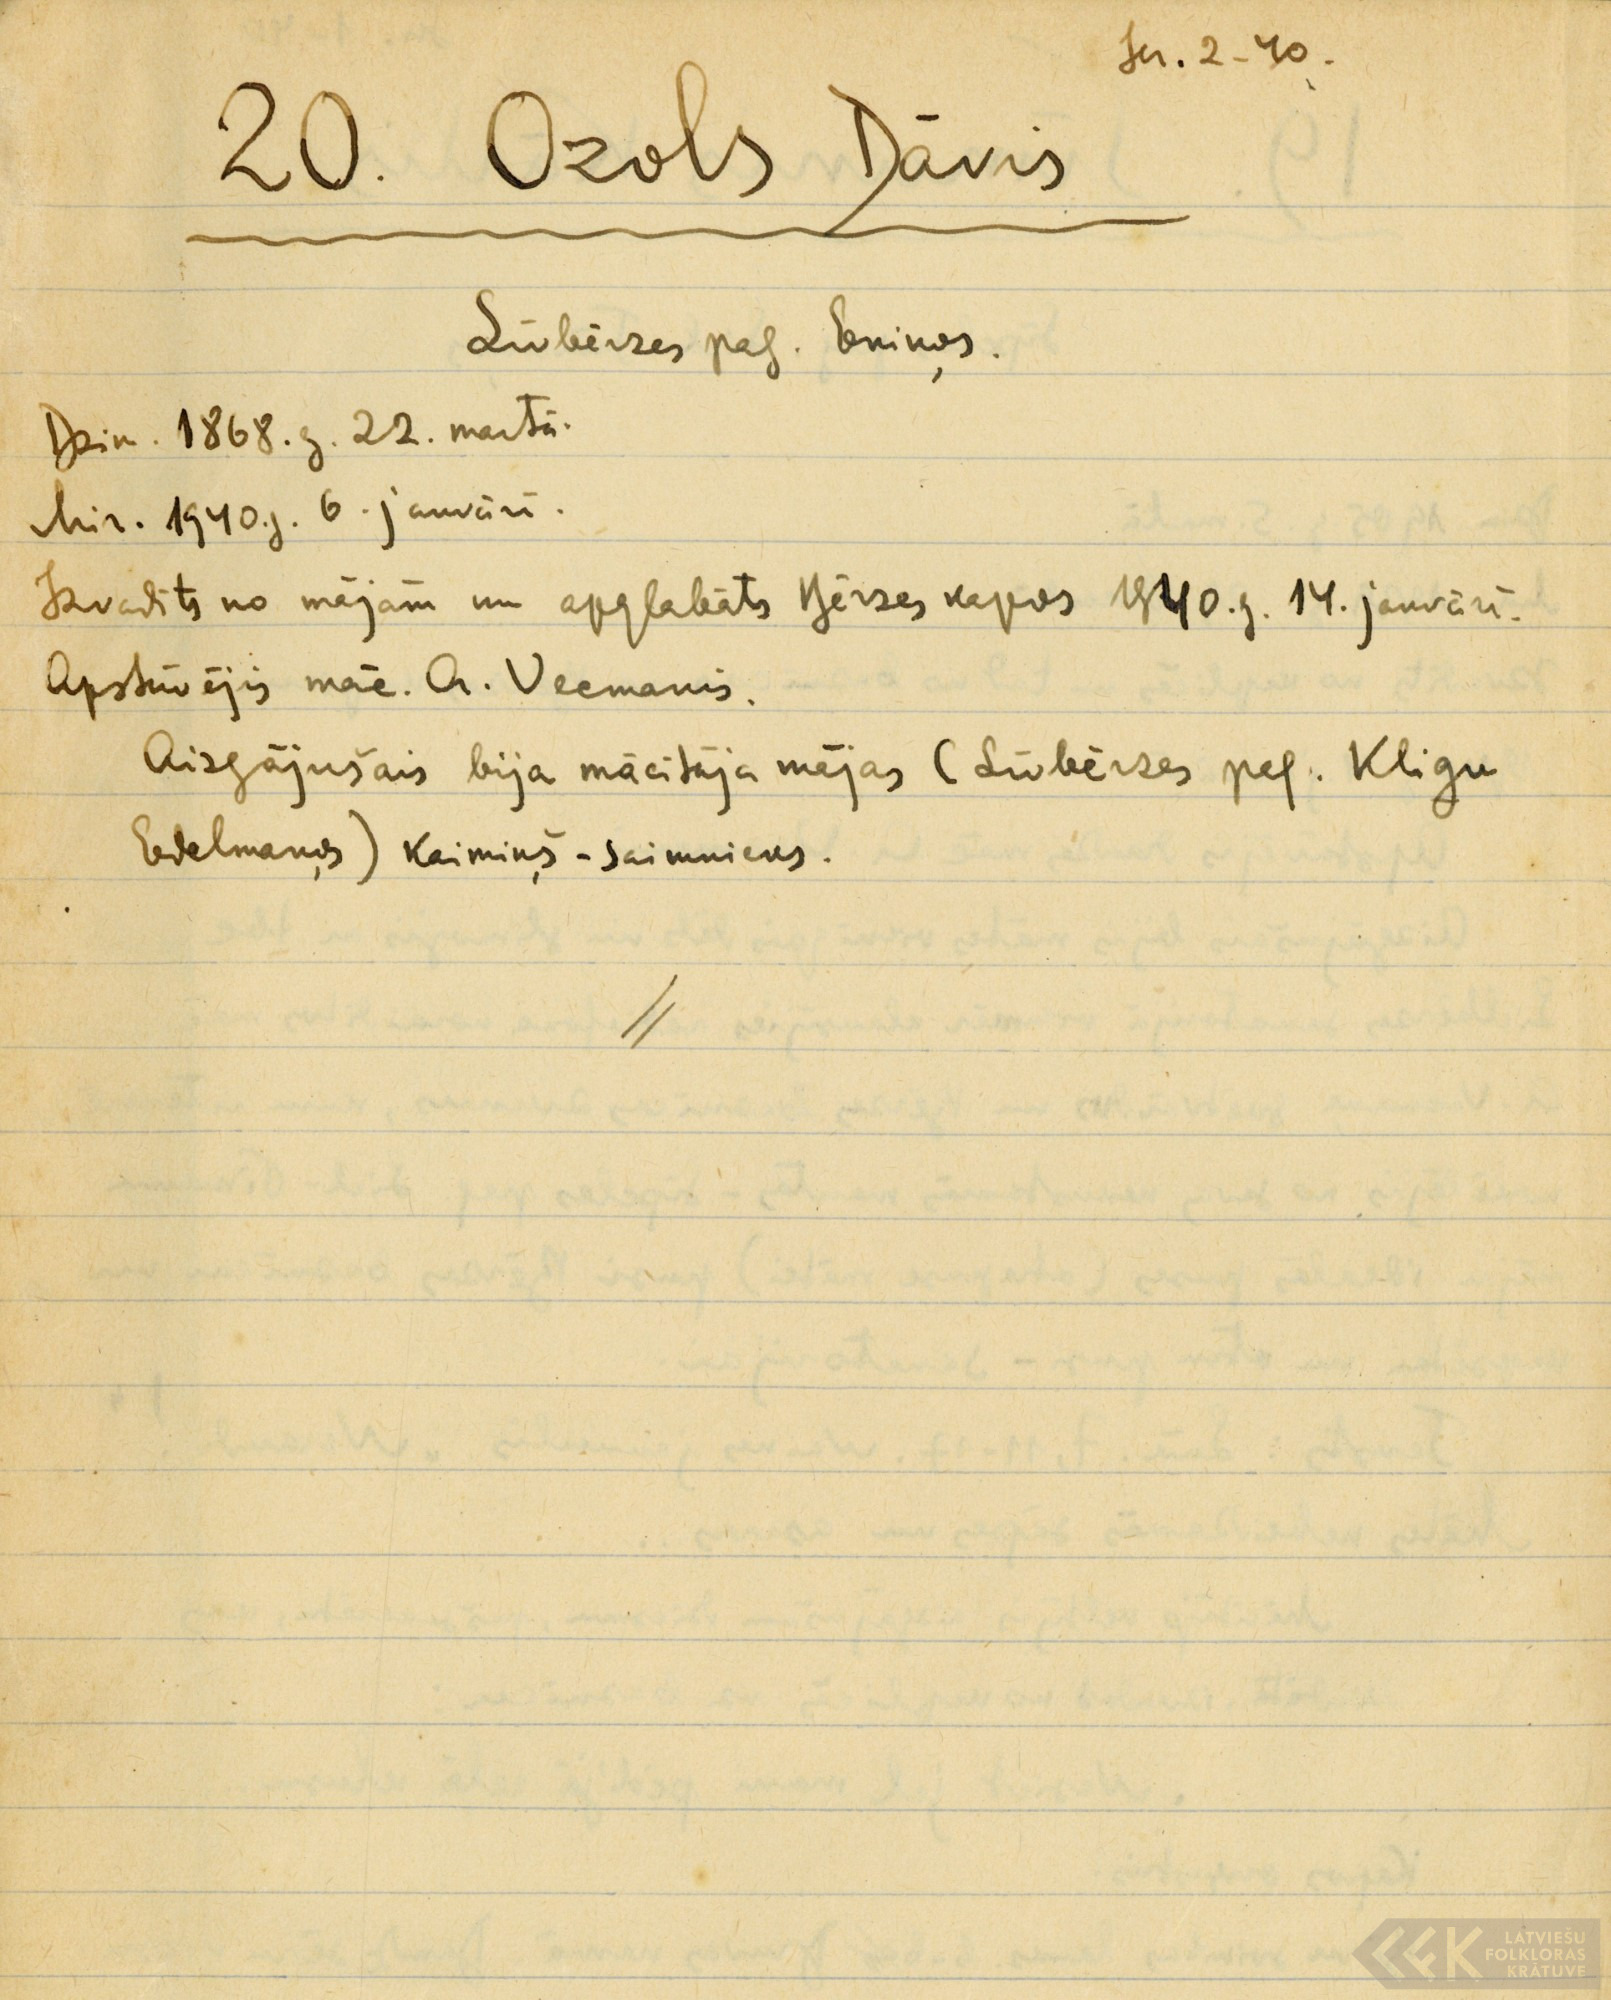 Jn. 2-40.
20. Ozols Dāvis
Līvbērzes pag. Eniņos.
Dzim. 1868.g. 22. martā.
Mir. 1940.g. 6. janvārī.
Izvadīts no mājām un apglabāts Bērzes kapos 1940.g. 14. janvārī.
Apstāvējis māc. A. Vecmanis.
Aizgājušais bija mācītāja mājas (Līvbērzes pag. Kligu
Edelmaņos) kaimiņš - saimnieks.
//
LATVIEŠU
FOLKLORAS
KRĀTUVE